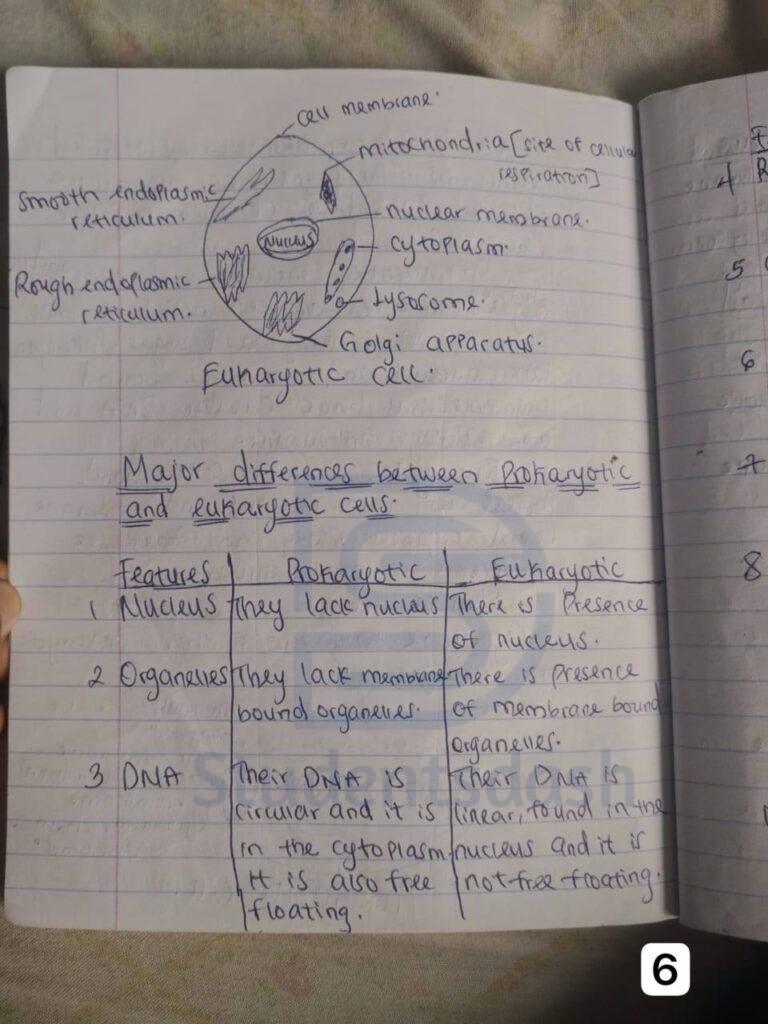 cell membrane.
mitochondria [site of cellular
respiration]
smooth endoplasmic
reticulum.
nuclear membrane.
Nucleus
cytoplasm.
Rough endoplasmic
reticulum.
Lysosome.
Golgi apparatus.
Eukaryotic cell.
Major differences between Prokaryotic
and eukaryotic cells.
Features Prokaryotic Eukaryotic
1 Nucleus They lack nucleus There is Presence
of nucleus.
2 Organelles They lack membrane There is presence
bound organelles. of membrane bound
organelles.
3 DNA Their DNA is Their DNA is
circular and it is linear, found in the
in the cytoplasm nucleus and it is
It is also free not free floating.
floating.
Studentsdash
4
5
6
7
8
6